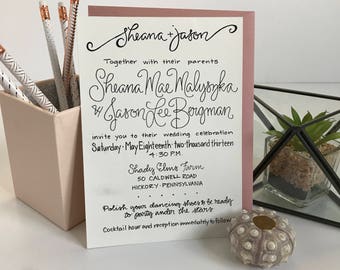 sheana + jason
Together with their parents
Sheana Mae Malyszka
& Jason Lee Bergman
invite you to their wedding celebration
Saturday · May Eighteenth · two thousand thirteen
4:30 P.M
Shady Elms Farm
50 CALDWELL ROAD
HICKORY · PENNSYLVANIA
Polish your dancing shoes & be ready
to party under the stars
Cocktail hour and reception immediately to follow